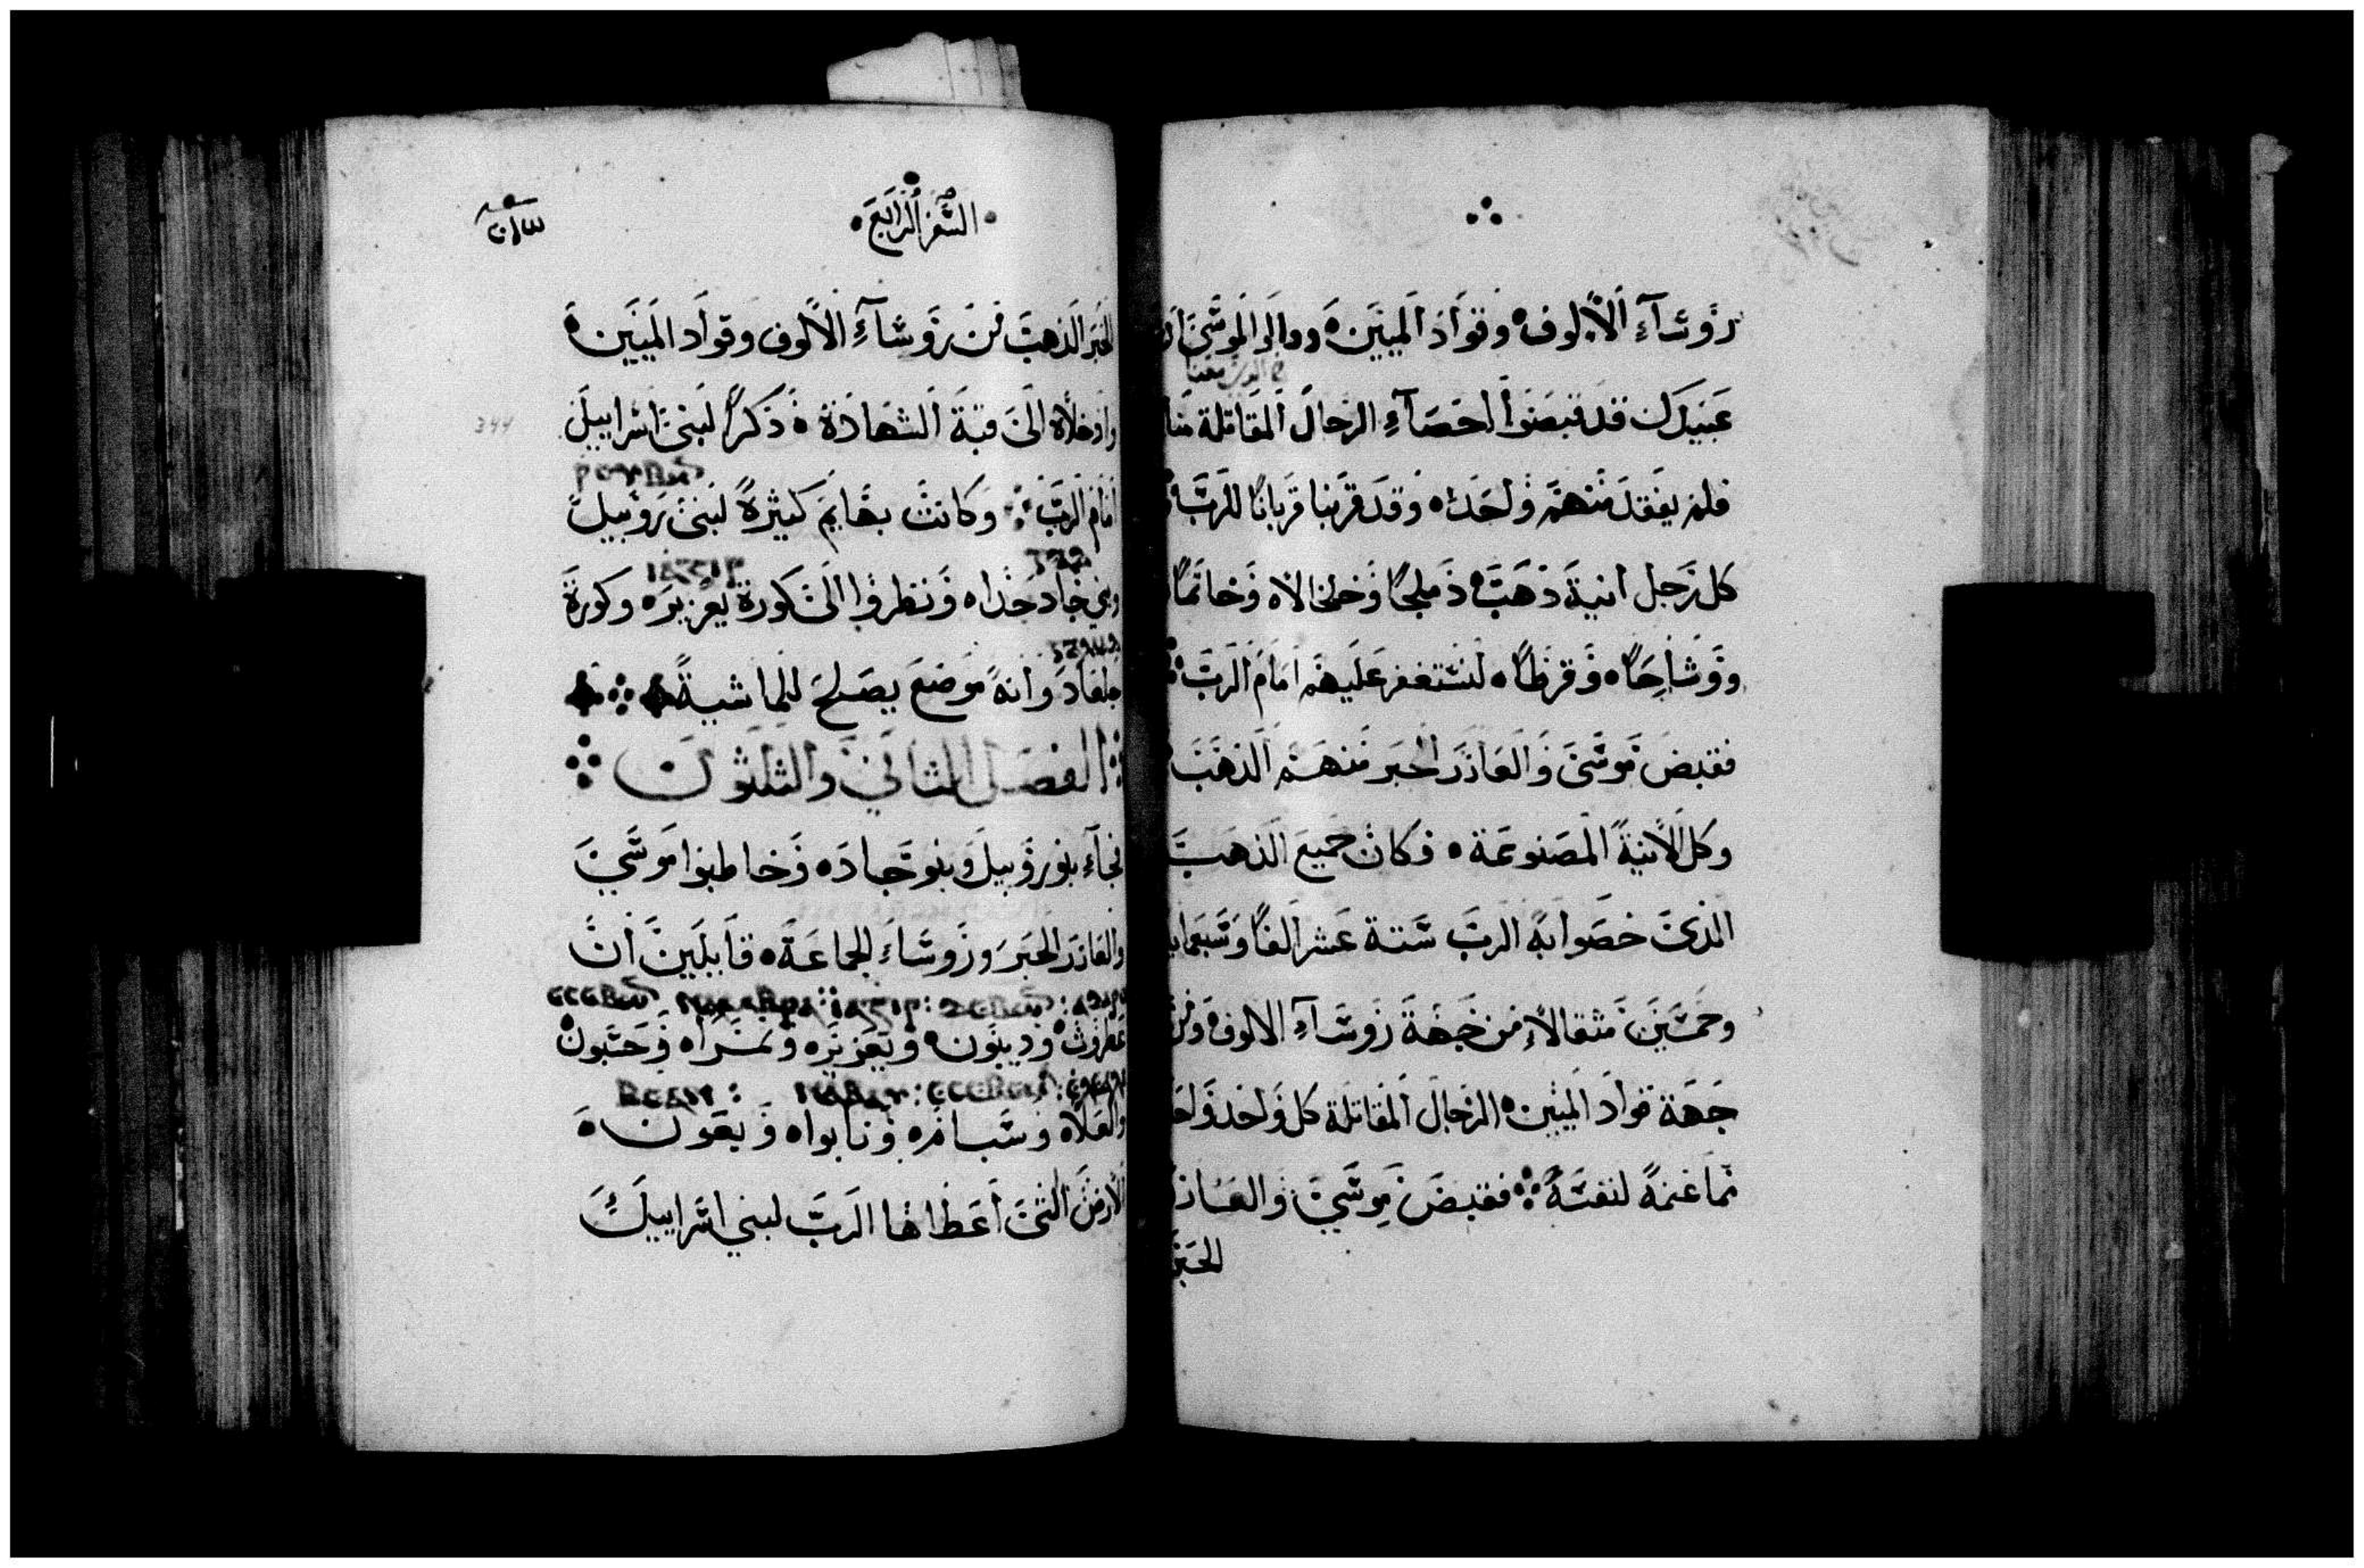 رؤساء الألوف وقواد الميين وقالوا لموسى ان
مع الذين معنا
عبيدك قد قبضوا احصاء الرجال المقاتلة منا
فلم يفقد منهم واحد وقد قربنا قربانا للرب
كل رجل انية ذهب دملجا وخلخالا وخاتما
ووشاحا وقرطا لنستغفر عليهم امام الرب
فقبض موسى والعازر الحبر منهم الذهب
وكل الانية المصنوعة فكان جميع الذهب
الذى خصوا به الرب ستة عشر الفا وسبعماية
وخمسين مثقالا من جهة روساء الالوف ومن
جهة قواد الميين الرجال المقاتلة كل واحد واحد
مما غنمه لنفسه فقبض موسى والعازر
الحبر
السفر الرابع
الحبر الذهب من روساء الالوف وقواد الميين
وادخلاه الى قبة الشهادة ذكرا لبنى اسراييل
344
امام الرب وكانت بهايم كثيرة لبنى روبيل
وبني جاد جدا ونظروا الى كورة يعزير وكورة
جلعاد وانه موضع يصلح للماشية
الفصل الثاني والثلثون
فجاء بنو روبيل وبنو جاد وخاطبوا موسى
والعازر الحبر وروساء الجماعة قايلين ان
عطروث وديبون ويعزير ونمرا وحسبون
والعلاه وسبامه ونابوا وبعون
الارض التى اعطاها الرب لبني اسراييل